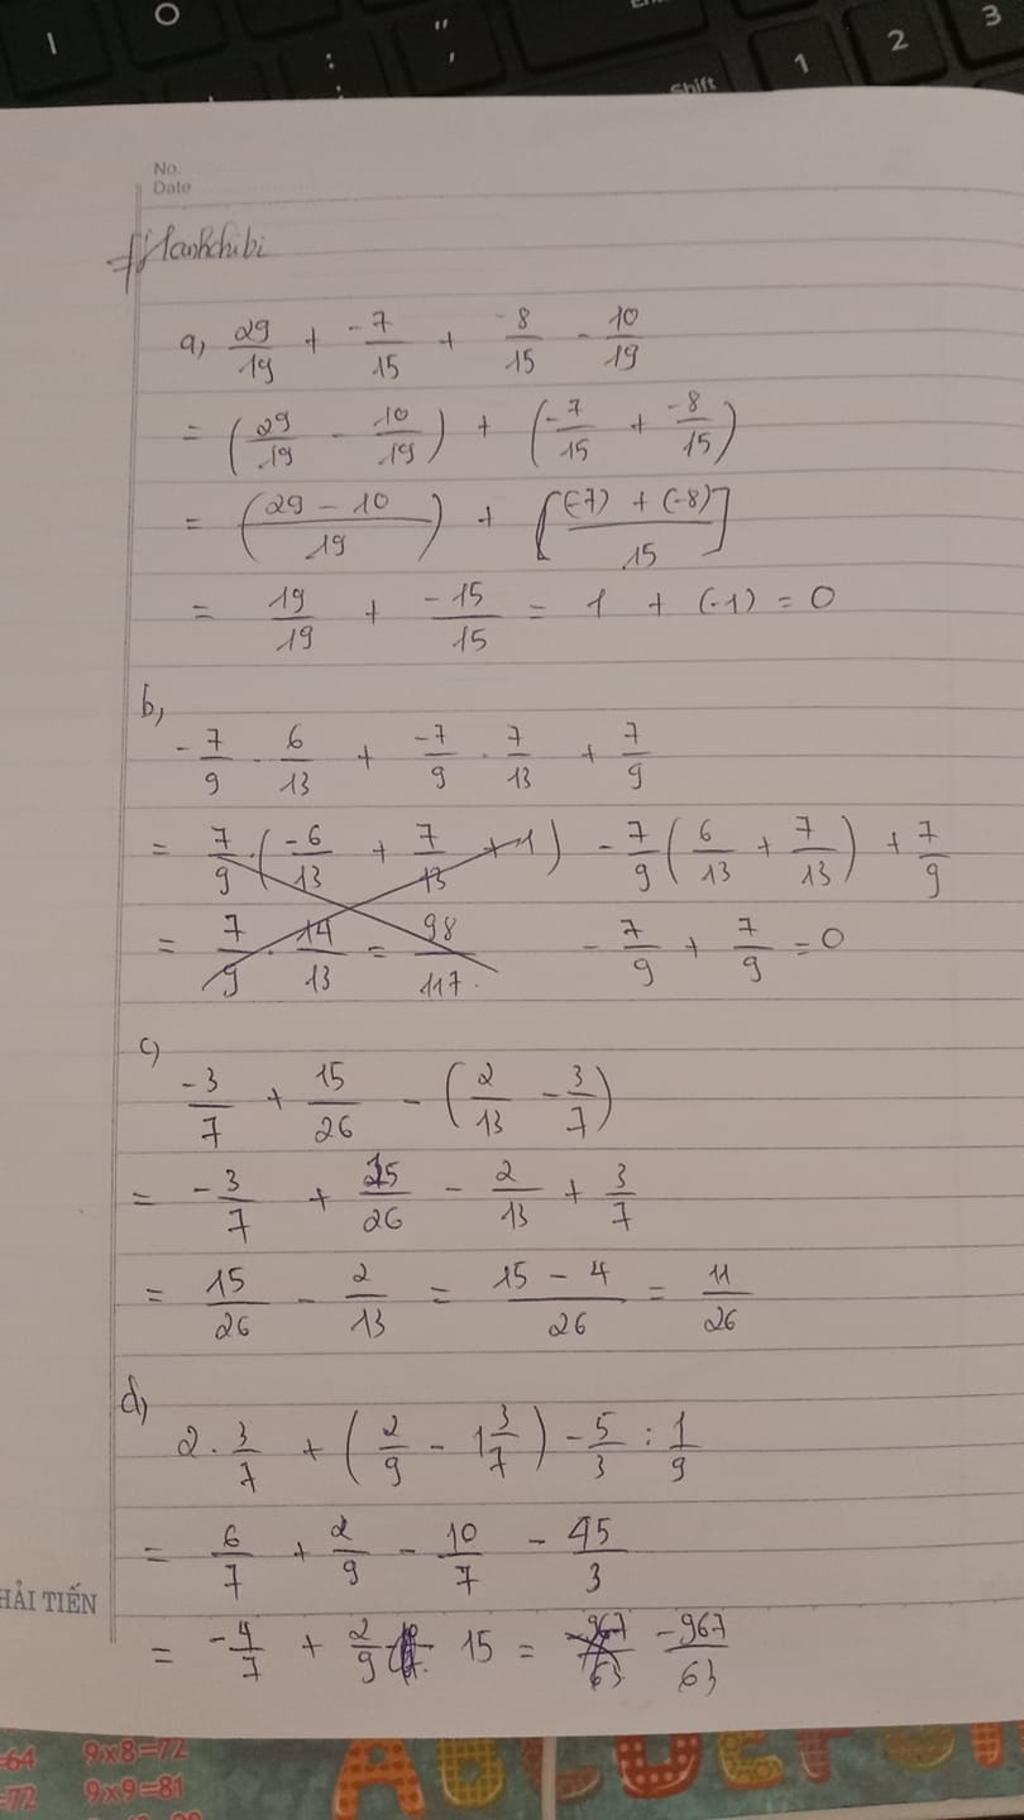 1
0
: ;
" ,
Shift
1
2
3
No.
Date
a, 29/19 + -7/15 + -8/15 - 10/19
= (29/19 - 10/19) + (-7/15 + -8/15)
= (29 - 10 / 19) + [(-7) + (-8) / 15]
= 19/19 + -15/15 = 1 + (-1) = 0
b,
-7/9 . 6/13 + -7/9 . 7/13 + 7/9
= 7/9 . (-6/13 + 7/13 + 1) -7/9 (6/13 + 7/13) + 7/9
= 7/9 . 14/13 = 98/117 . -7/9 + 7/9 = 0
c,
-3/7 + 15/26 - (2/13 - 3/7)
= -3/7 + 15/26 - 2/13 + 3/7
= 15/26 - 2/13 = 15 - 4 / 26 = 11/26
d,
2 . 3/7 + (2/9 - 1 3/7) - 5/3 : 1/9
= 6/7 + 2/9 - 10/7 - 45/3
HẢI TIẾN
= -4/7 + 2/9 - 15 = -967/63 -967/63
=64 9x8=72
=72 9x9=81
ABCDEFGH